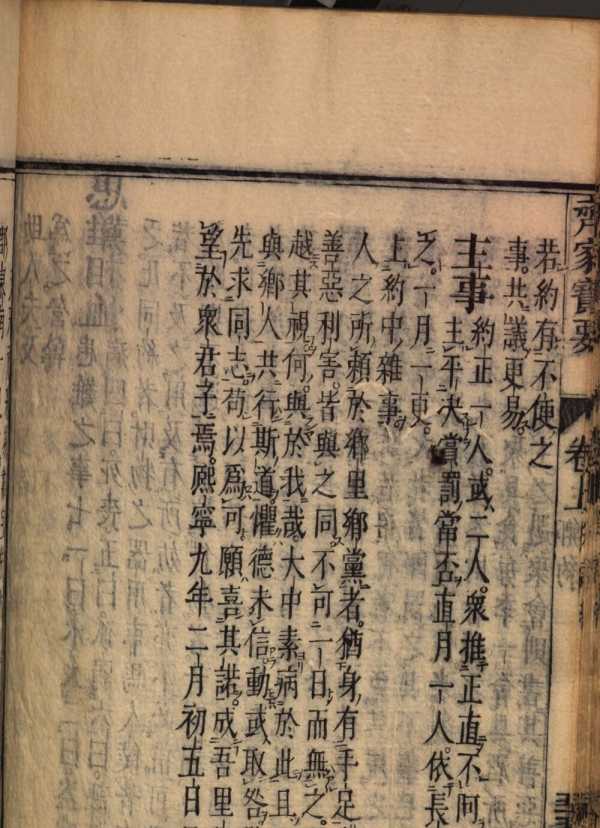 齊家寶要 卷上
若約有不便之
事。共議更易。
主事 約正一人。或二人。衆推正直不阿
主平決賞罰當否。直月一人。依長
之。一月一更。
主約中雜事。
人之所賴於鄉里鄉黨者。猶身有手足
善惡利害。皆與之同。不可一日而無之。
越其視。何與於我哉。大中素病於此。且
與鄉人共行斯道。懼德未信。動或取咎
先求同志。苟以爲可。願喜其諾。成吾里
望於衆君子焉。熙寧九年二月初五日